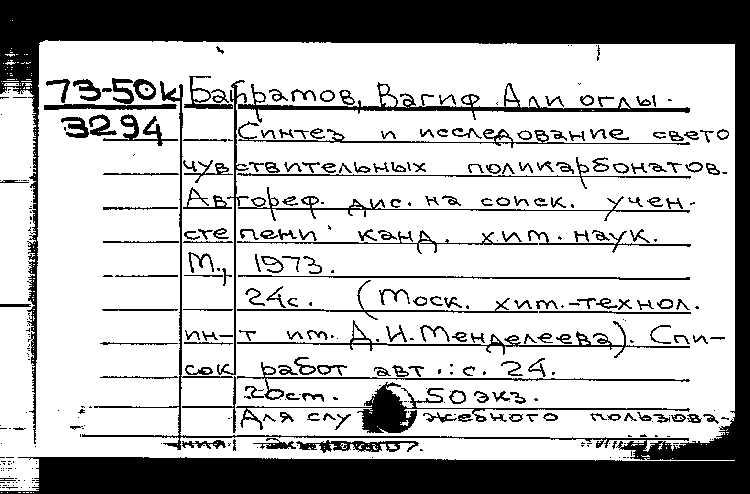 73-50к Байрамов, Вагиф Али оглы.
3294 Синтез и исследование свето
чувствительных поликарбонатов.
Автореф. дис. на соиск. учен.
степени канд. хим. наук.
М., 1973.
24с. (Моск. хим.-технол.
ин-т им. Д.И.Менделеева). Спи-
сок работ авт.: с. 24.
20см. 50экз.
Для служебного пользова-
ния.